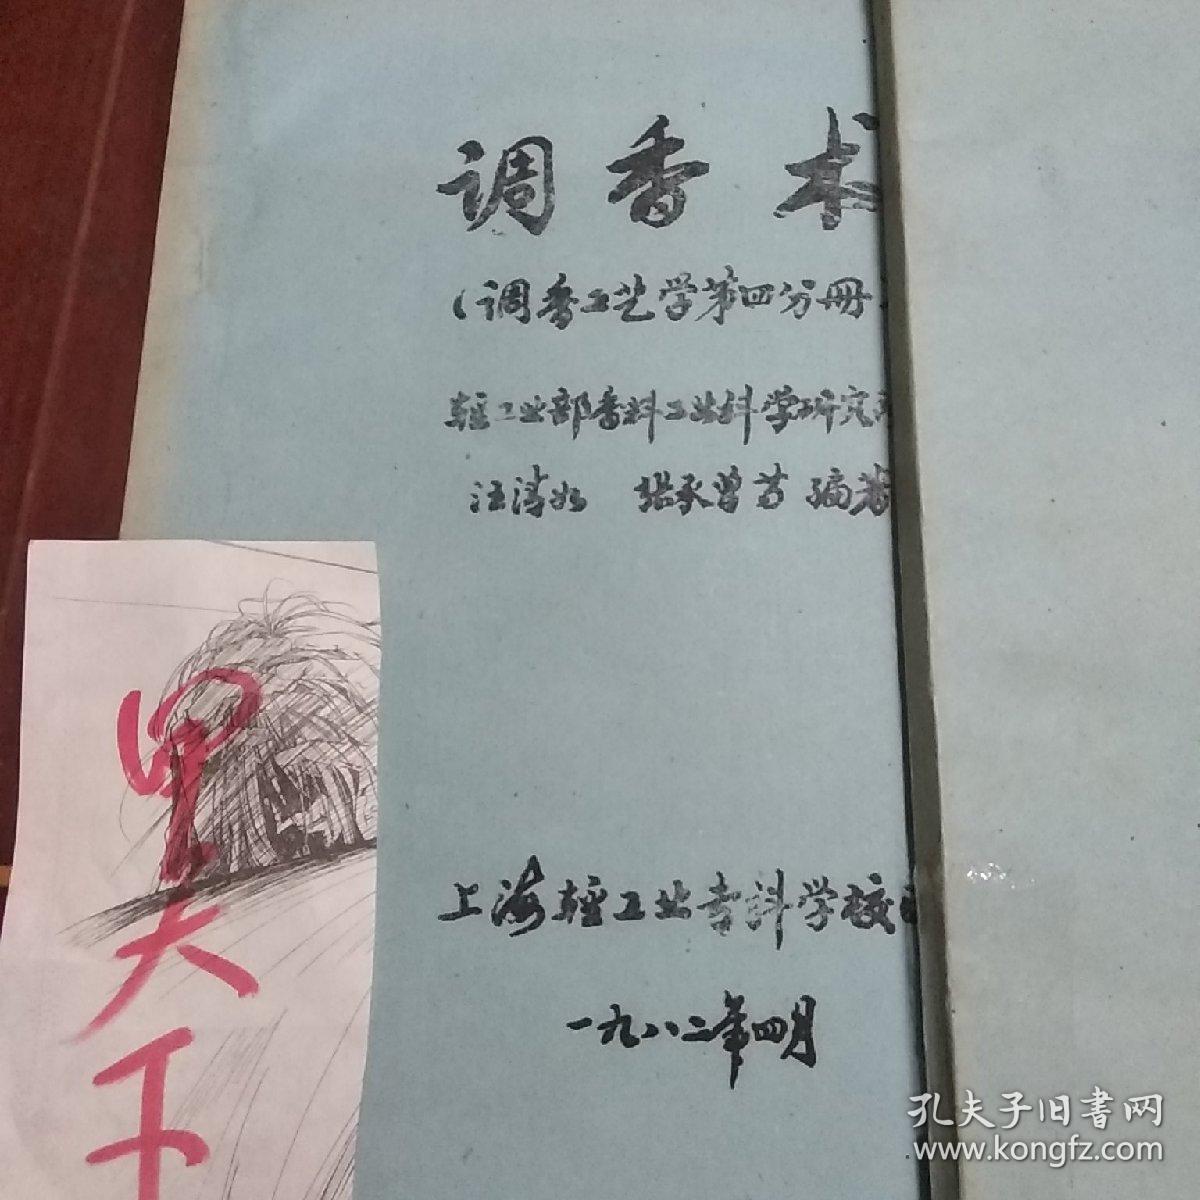 调香术
(调香工艺学第四分册
轻工业部香料工业科学研究
汪清如 张承曾 等 编著
上海轻工业专科学校
一九八二年四月
大
孔夫子旧书网
www.kongfz.com